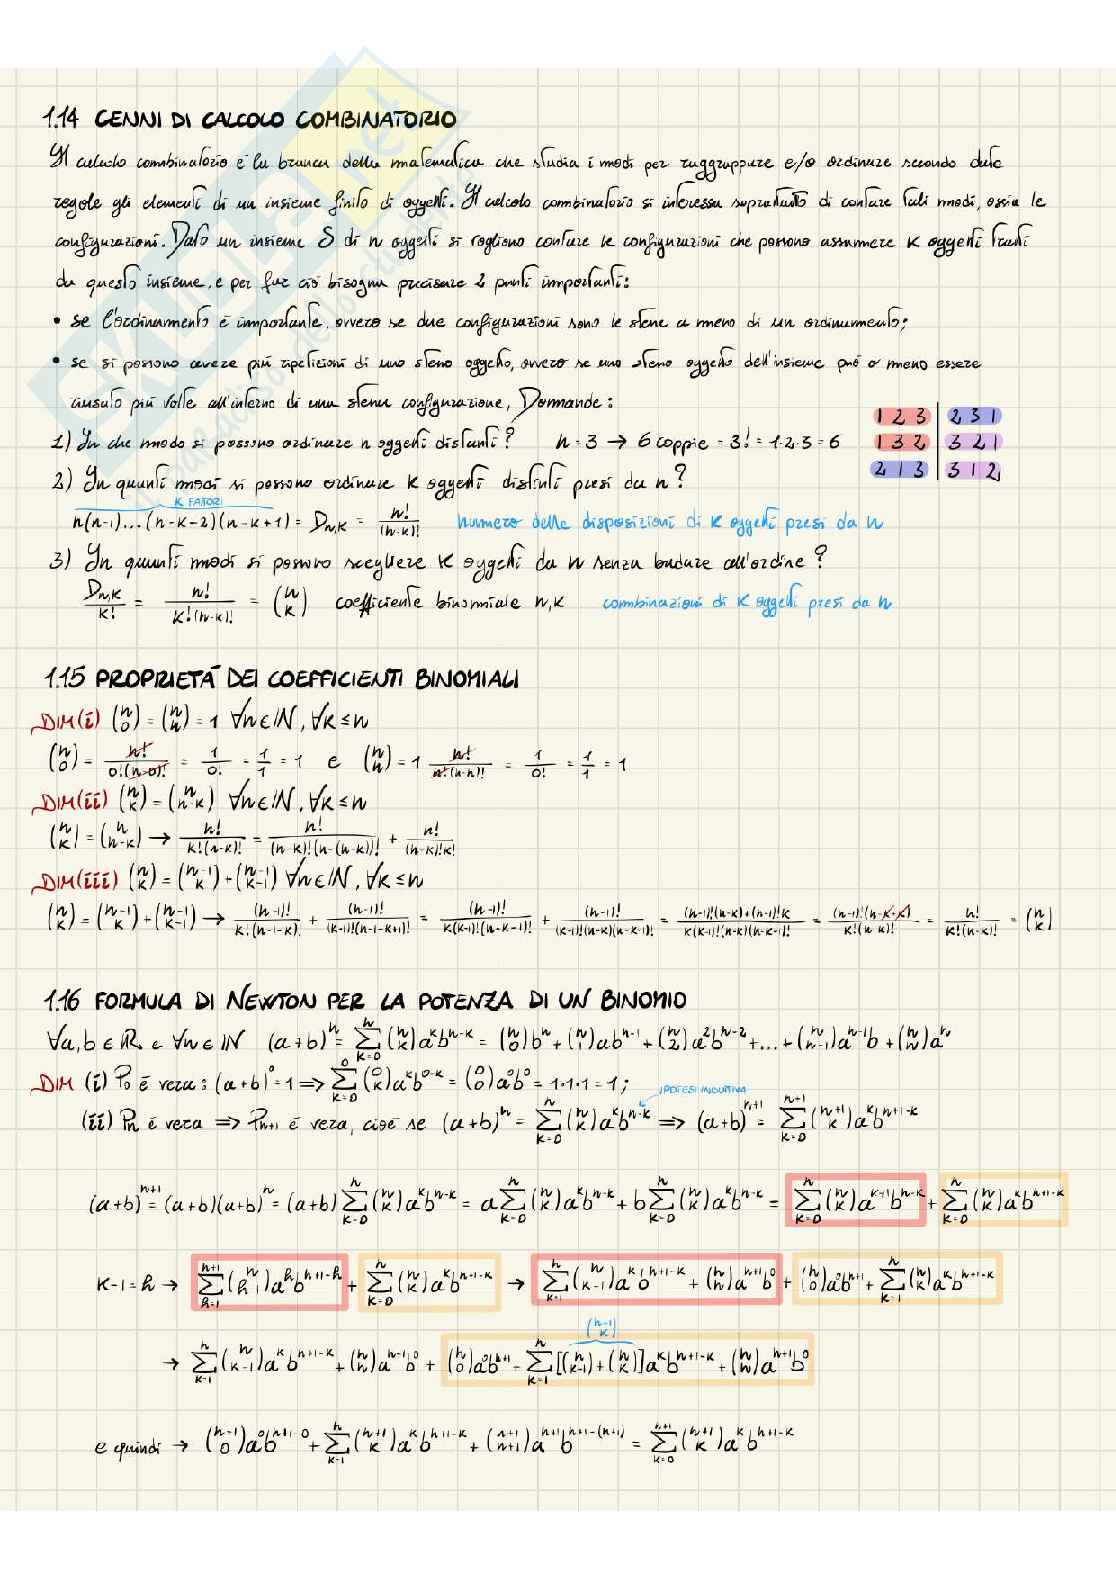 1.14 CENNI DI CALCOLO COMBINATORIO
Il calcolo combinatorio è la branca della matematica che studia i modi per raggruppare e/o ordinare secondo date
regole gli elementi di un insieme finito di oggetti. Il calcolo combinatorio si interessa soprattutto di contare tali modi, ossia le
configurazioni. Dato un insieme S di n oggetti si vogliono contare le configurazioni che possono assumere k oggetti tratti
da questo insieme, e per far ciò bisogna precisare 2 punti importanti:
• se l'ordinamento è importante, ovvero se due configurazioni sono le stesse a meno di un ordinamento;
• se si possono avere più ripetizioni di uno stesso oggetto, ovvero se uno stesso oggetto dell'insieme può o meno essere
riusato più volte all'interno di una stessa configurazione, Domande:
1) In che modo si possono ordinare n oggetti distanti? n = 3 → 6 coppie = 3! = 1·2·3 = 6
1 2 3 | 2 3 1
1 3 2 | 3 2 1
2 1 3 | 3 1 2
2) In quanti modi si possono ordinare k oggetti distinti presi da n?
K FATORI
n(n-1)...(n-k-2)(n-k+1) = D_{n,k} = n!/(n-k)! numero delle disposizioni di k oggetti presi da n
3) In quanti modi si possono scegliere k oggetti da n senza badare all'ordine?
D_{n,k}/k! = n!/(k!(n-k)!) = (n k) coefficiente binomiale n,k combinazioni di k oggetti presi da n
1.15 PROPRIETÁ DEI COEFFICIENTI BINOMIALI
DIM(i) (n 0) = (n n) = 1 ∀n∈ℕ, ∀k≤n
(n 0) = n!/(0!(n-0)!) = 1/0! = 1/1 = 1 e (n n) = 1 n!/(n!(n-n)!) = 1/0! = 1/1 = 1
DIM(ii) (n k) = (n n-k) ∀n∈ℕ, ∀k≤n
(n k) = (n n-k) → n!/(k!(n-k)!) = n!/((n-k)!(n-(n-k))!) + n!/((n-k)!k!)
DIM(iii) (n k) = (n-1 k) + (n-1 k-1) ∀n∈ℕ, ∀k≤n
(n k) = (n-1 k) + (n-1 k-1) → (n-1)!/(k!(n-1-k)!) + (n-1)!/((k-1)!(n-1-k+1)!) = (n-1)!/(k(k-1)!(n-k-1)!) + (n-1)!/((k-1)!(n-k)(n-k-1)!) = ((n-1)!(n-k)+(n-1)!k)/(k(k-1)!(n-k)(n-k-1)!) = (n-1)!(n-k+k)/(k!(n-k)!) = n!/(k!(n-k)!) = (n k)
1.16 FORMULA DI NEWTON PER LA POTENZA DI UN BINOMIO
∀a,b ∈ ℝ e ∀n∈ℕ (a+b)^n = Σ_{k=0}^{n} (n k)a^k b^{n-k} = (n 0)b^n + (n 1)ab^{n-1} + (n 2)a^2b^{n-2} + ... + (n n-1)a^{n-1}b + (n n)a^n
DIM (i) P_0 è vera: (a+b)^0 = 1 ⟹ Σ_{k=0}^{0} (0 k)a^k b^{0-k} = (0 0)a^0b^0 = 1·1·1 = 1;
IPOTESI INDUTTIVA
(ii) P_n è vera ⟹ P_{n+1} è vera, cioè se (a+b)^n = Σ_{k=0}^{n} (n k)a^k b^{n-k} ⟹ (a+b)^{n+1} = Σ_{k=0}^{n+1} (n+1 k)a^k b^{n+1-k}
(a+b)^{n+1} = (a+b)(a+b)^n = (a+b) Σ_{k=0}^{n} (n k)a^k b^{n-k} = a Σ_{k=0}^{n} (n k)a^k b^{n-k} + b Σ_{k=0}^{n} (n k)a^k b^{n-k} = Σ_{k=0}^{n} (n k)a^{k+1}b^{n-k} + Σ_{k=0}^{n} (n k)a^k b^{n+1-k}
k-1 = h → Σ_{h=1}^{n+1} (n h-1)a^h b^{n+1-h} + Σ_{k=0}^{n} (n k)a^k b^{n-1-k} → Σ_{k=1}^{n} (n k-1)a^k b^{n+1-k} + (n n)a^{n+1}b^0 + (n 0)a^0b^{n+1} + Σ_{k=1}^{n} (n k)a^k b^{n+1-k}
(n-1 k)
→ Σ_{k=1}^{n} (n k-1)a^k b^{n+1-k} + (n n)a^{n-1}b^0 + (n 0)a^0b^{n+1} - Σ_{k=1}^{n} [(n k-1) + (n k)]a^k b^{n+1-k} + (n n)a^{n+1}b^0
e quindi → (n-1 0)a^0b^{n+1-0} + Σ_{k=1}^{n} (n+1 k)a^k b^{n+1-k} + (n+1 n+1)a^{n+1}b^{n+1-(n+1)} = Σ_{k=0}^{n+1} (n+1 k)a^k b^{n+1-k}